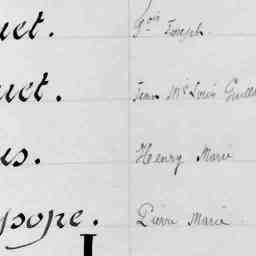 uet. Gois Joseph.
uet. Jean Me Louis Guill
us. Henry Marie
pope. Pierre Marie